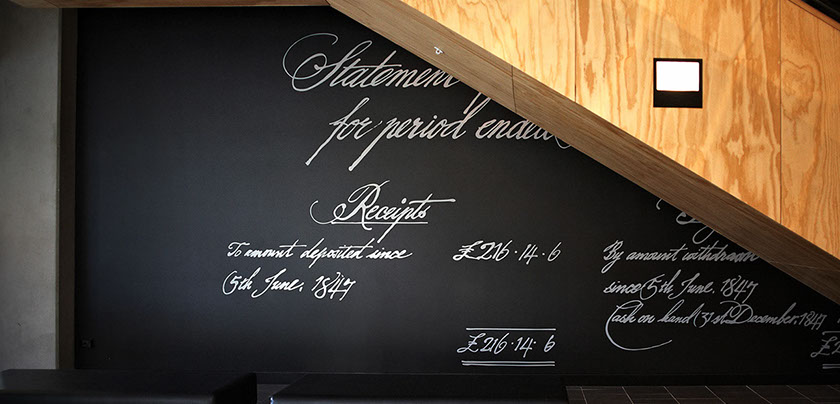 Statement
for period ended
Receipts
To amount deposited since
5th June, 1847
£216·14·6
£216·14·6
By amount withdrawn
since 5th June, 1847
Cash on hand 31st December, 1847